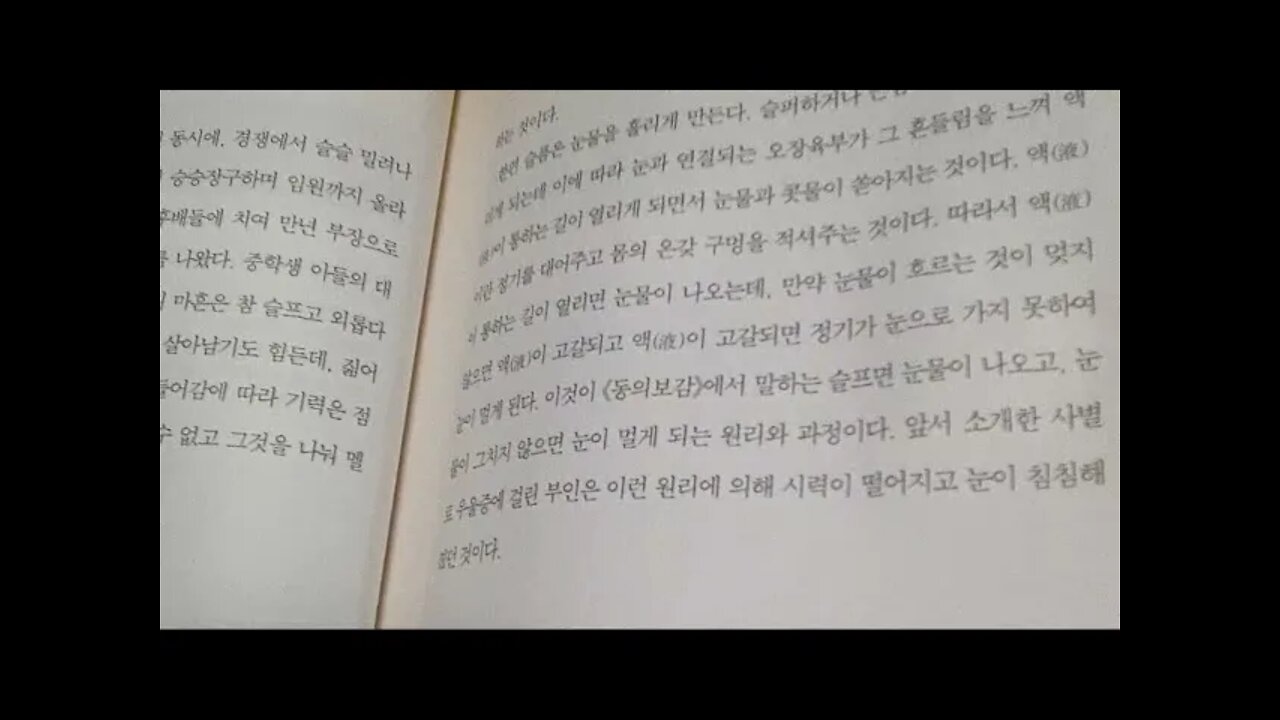 동시에, 경쟁에서 슬슬 밀려나
승승장구하며 임원까지 올라
후배들에 치여 만년 부장으로
나왔다. 중학생 아들의 대
마흔은 참 슬프고 외롭다
살아남기도 힘든데, 짊어
들어감에 따라 기력은 점
수 없고 그것을 나눠 멜
것이다.
한편 슬픔은 눈물을 흘리게 만든다. 슬퍼하거나
되는데 이에 따라 눈과 연결되는 오장육부가 그 흔들림을 느껴 액
(液)이 통하는 길이 열리게 되면서 눈물과 콧물이 쏟아지는 것이다. 액(液)
이란 정기를 대어주고 몸의 온갖 구멍을 적셔주는 것이다. 따라서 액(液)
이 통하는 길이 열리면 눈물이 나오는데, 만약 눈물이 흐르는 것이 멎지
않으면 액(液)이 고갈되고 액(液)이 고갈되면 정기가 눈으로 가지 못하여
눈이 멀게 된다. 이것이 《동의보감》에서 말하는 슬프면 눈물이 나오고, 눈
물이 그치지 않으면 눈이 멀게 되는 원리와 과정이다. 앞서 소개한 사별
로 우울증에 걸린 부인은 이런 원리에 의해 시력이 떨어지고 눈이 침침해
졌던 것이다.